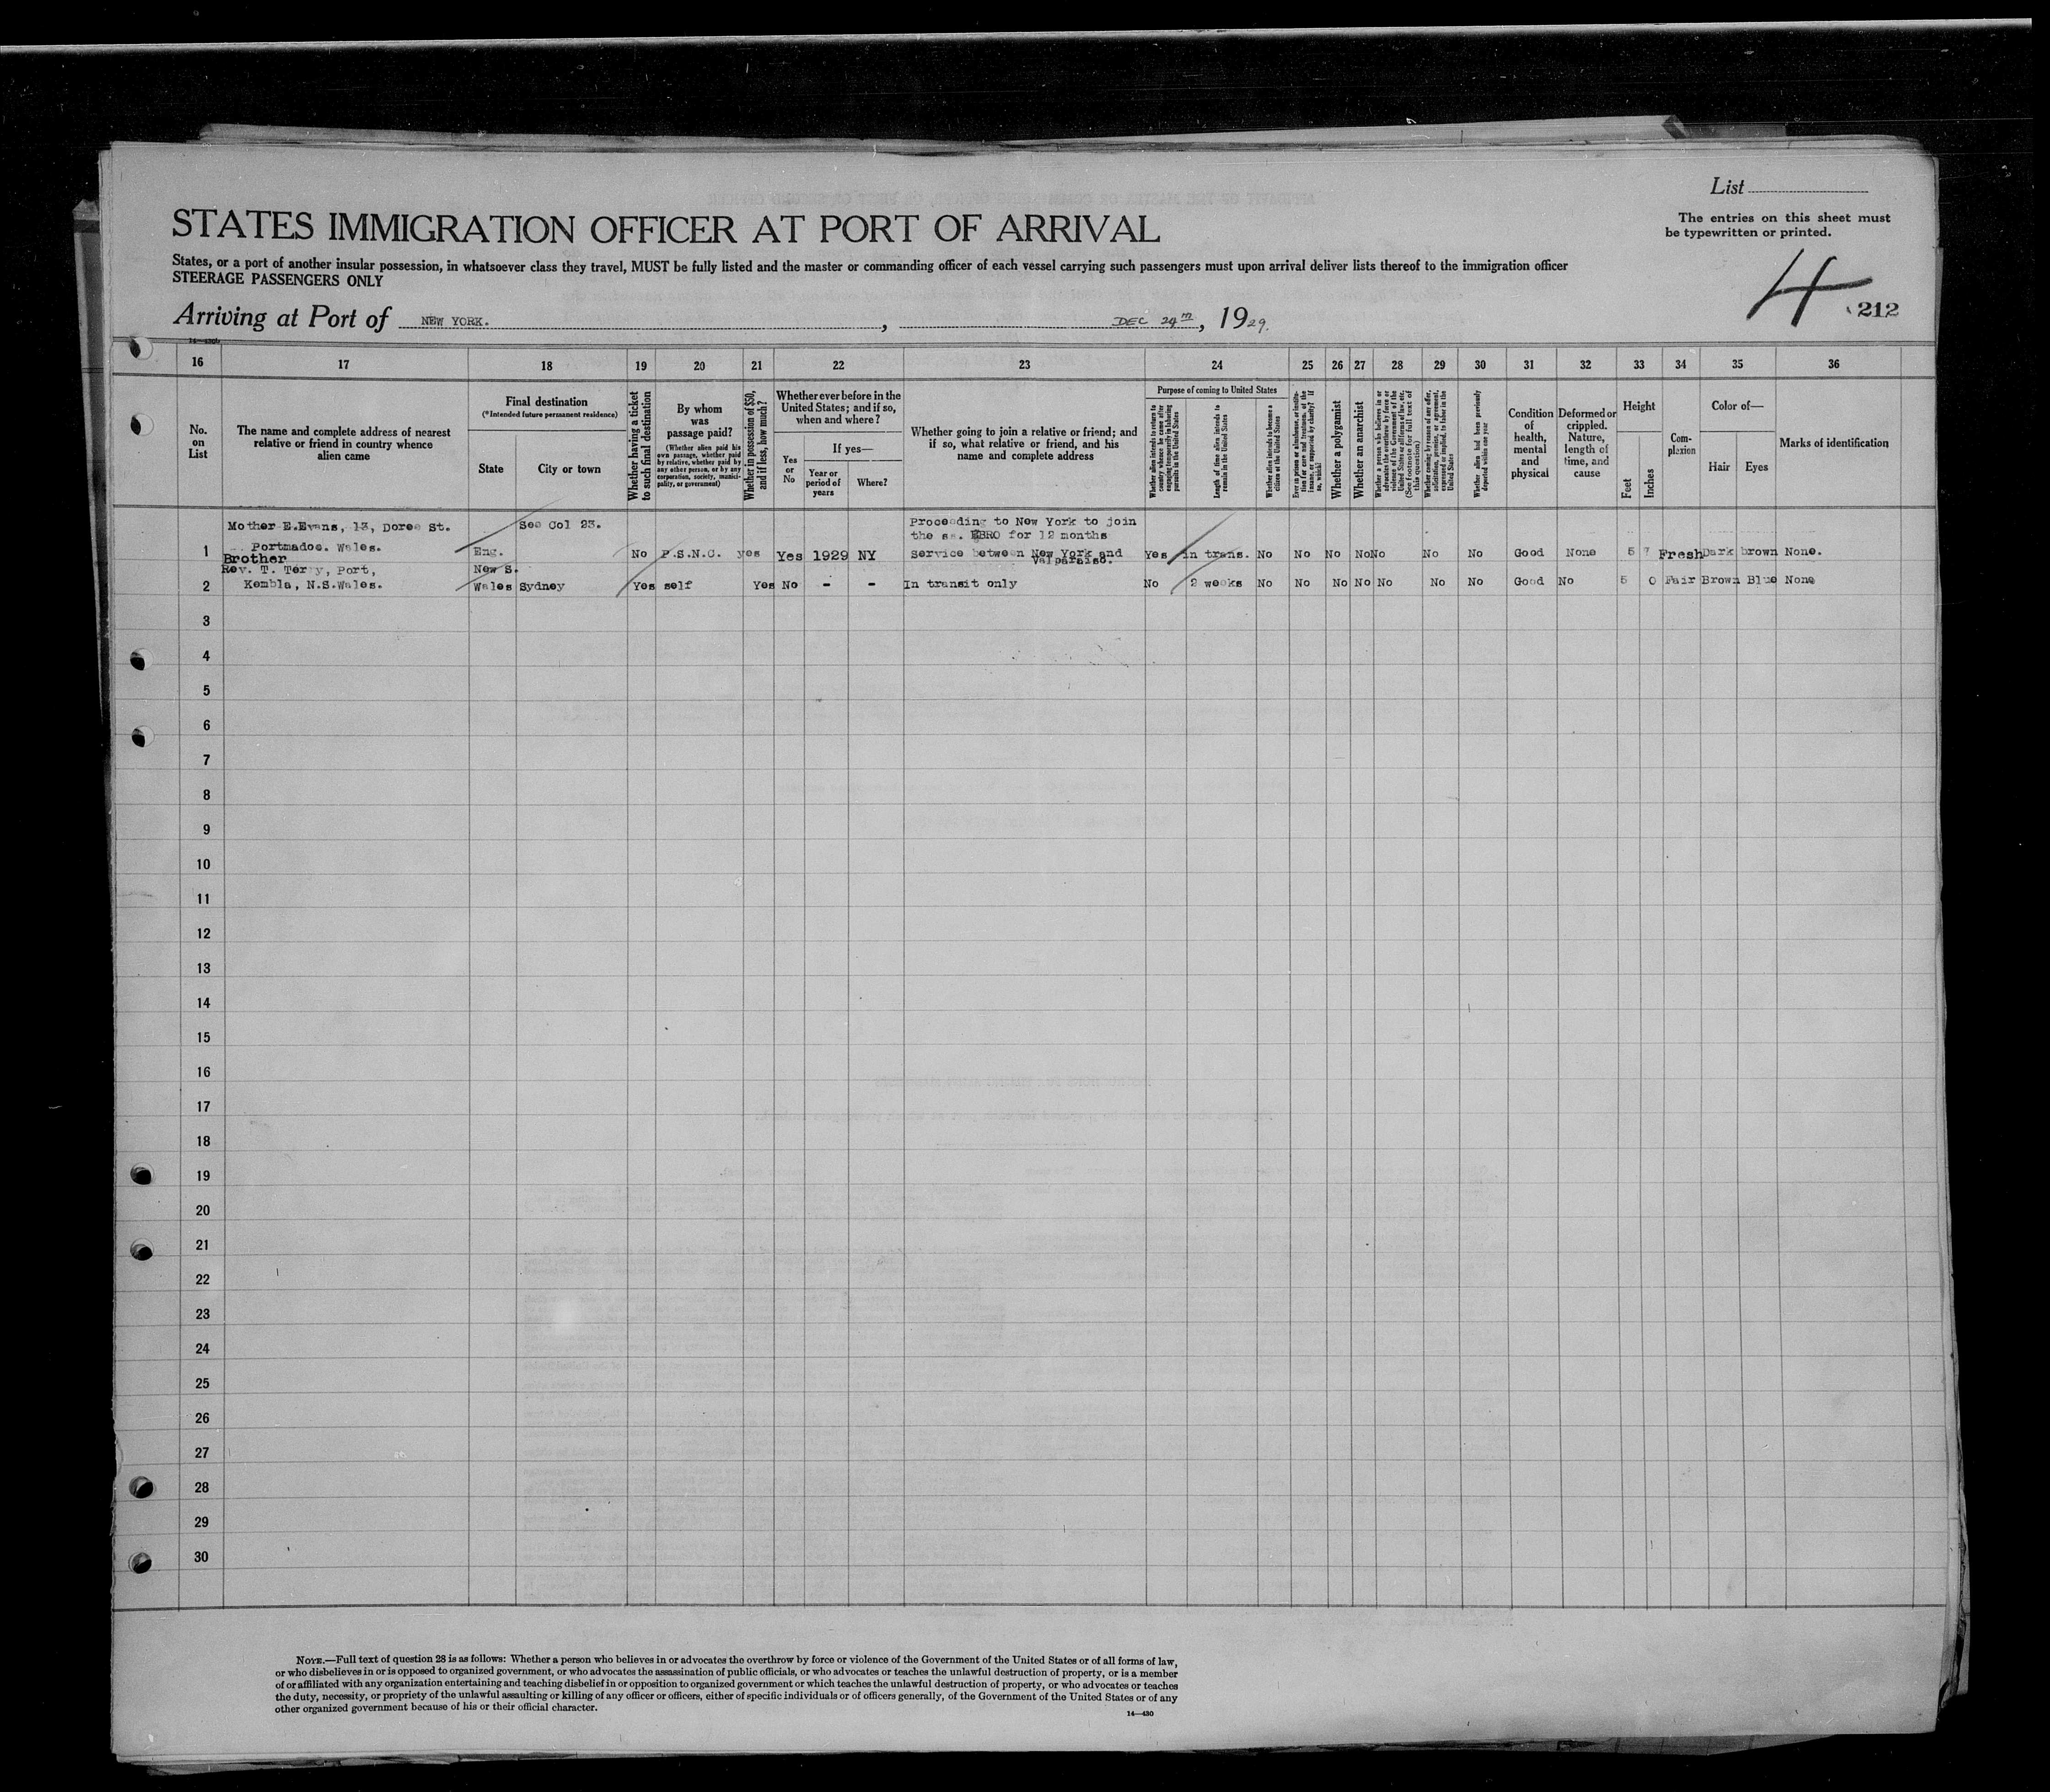 List
The entries on this sheet must
be typewritten or printed.
STATES IMMIGRATION OFFICER AT PORT OF ARRIVAL
States, or a port of another insular possession, in whatsoever class they travel, MUST be fully listed and the master or commanding officer of each vessel carrying such passengers must upon arrival deliver lists thereof to the immigration officer
STEERAGE PASSENGERS ONLY
4
212
Arriving at Port of NEW YORK. , DEC 24TH, 1929.
16 17 18 19 20 21 22 23 24 25 26 27 28 29 30 31 32 33 34 35 36
No.
on
List
The name and complete address of nearest
relative or friend in country whence
alien came
Final destination
(*Intended future permanent residence)
State
City or town
Whether having a ticket
to such final destination
By whom
was
passage paid?
(Whether alien paid his
own passage, whether paid
by relative, whether paid by
any other person, or by any
corporation, society, munici-
pality, or government)
Whether in possession of $50,
and if less, how much?
Whether ever before in the
United States; and if so,
when and where?
Yes
or
No
If yes—
Year or
period of
years
Where?
Whether going to join a relative or friend; and
if so, what relative or friend, and his
name and complete address
Purpose of coming to United States
Whether alien intends to return to
country whence he came after
engaging temporarily in laboring
pursuits in the United States
Length of time alien intends to
remain in the United States
Whether alien intends to become a
citizen of the United States
Ever in prison or almshouse, or institu-
tion for care and treatment of the
insane, or supported by charity? If
so, which?
Whether a polygamist
Whether an anarchist
Whether a person who believes in or
advocates the overthrow by force or
violence of the Government of the
United States or all forms of law, etc.
(See footnote for full text of
this question)
Whether coming by reason of any offer,
solicitation, promise, or agreement,
expressed or implied, to labor in the
United States
Whether alien had been previously
deported within one year
Condition
of
health,
mental
and
physical
Deformed or
crippled.
Nature,
length of
time, and
cause
Height
Feet
Inches
Com-
plexion
Color of—
Hair
Eyes
Marks of identification
Mother E.Evans, 13, Doree St. See Col 23. Proceeding to New York to join
the ss. EBRO for 12 months
1 Portmadoc. Wales. Eng. No P.S.N.C. yes Yes 1929 NY service between New York and Yes in trans. No No No No No No No Good None 5 7 Fresh Dark brown None.
Valparaiso.
Brother
Rev. T. Terry, Port, New S.
2 Kembla, N.S.Wales. Wales Sydney Yes self Yes No - - In transit only No 2 weeks No No No No No No No Good No 5 0 Fair Brown Blue None
3
4
5
6
7
8
9
10
11
12
13
14
15
16
17
18
19
20
21
22
23
24
25
26
27
28
29
30
NOTE.—Full text of question 28 is as follows: Whether a person who believes in or advocates the overthrow by force or violence of the Government of the United States or of all forms of law,
or who disbelieves in or is opposed to organized government, or who advocates the assassination of public officials, or who advocates or teaches the unlawful destruction of property, or is a member
of or affiliated with any organization entertaining and teaching disbelief in or opposition to organized government or which teaches the unlawful destruction of property, or who advocates or teaches
the duty, necessity, or propriety of the unlawful assaulting or killing of any officer or officers, either of specific individuals or of officers generally, of the Government of the United States or of any
other organized government because of his or their official character.
14—430